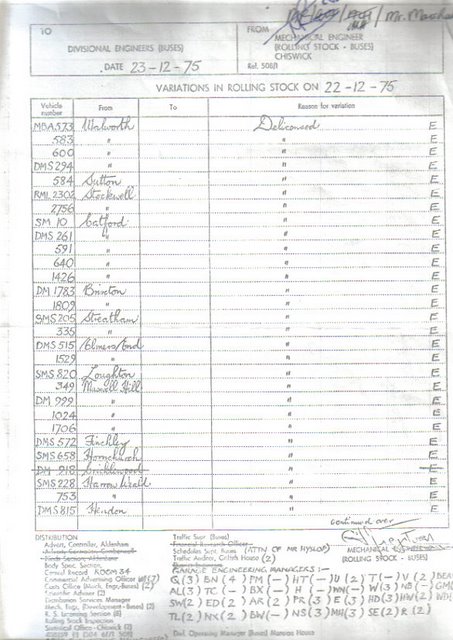 Mr. Marsham
TO
DIVISIONAL ENGINEERS (BUSES)
DATE 23-12-75
FROM
MECHANICAL ENGINEER
(ROLLING STOCK - BUSES)
CHISWICK
Ref. 508/1
VARIATIONS IN ROLLING STOCK ON 22-12-75
Vehicle number From To Reason for variation
MBA573 Walworth Delicensed E
583 " " E
600 " " E
DMS 294 " " E
584 Sutton " E
RML 2302 Stockwell " E
2756 " " E
SM 10 Catford " E
DMS 261 " " E
591 " " E
640 " " E
1426 " " E
DM 1783 Brixton " E
1809 " " E
SMS 205 Streatham " E
335 " " E
DMS 515 Elmers End " E
1529 " " E
SMS 820 Loughton " E
349 Muswell Hill " E
DM 999 " " E
1024 " " E
1706 " " E
DMS 572 Finchley " E
SMS 658 Hornchurch " E
DM 918 Cricklewood " E
SMS 228 Harrow Weald " E
753 " " E
DMS 815 Hendon " E
continued over
DISTRIBUTION
Advert. Controller, Aldenham
Body Spec. Section
Central Record ROOM 34
Commercial Advertising Officer
Costs Office (Mech. Engr. Buses) (2)
Distribution Services Manager
Mech. Engr. (Development - Buses) (2)
R. S. Licensing Office
Rolling Stock Inspection
Statistical Office - Chiswick (2)
Traffic Supt (Buses)
Financial Research Officer
Schedules Supt. Buses (ATTN OF MR HYSLOP)
Traffic Auditor, Griffith House (2)
GARAGE ENGINEERING MANAGERS:-
Q(3) BN(4 PM(-) HT(-) U(2) T(-) V(2)
AL(3) TC(-) BX(-) H(-) WN(-) W(3) NB(-)
SW(2) ED(2) AR(2) PR(3) E(3) HD(3) HW(2)
TL(2) NX(2) BW(-) NS(3) MH(3) SE(2) R(2)
Divl. Operating Manager (Buses) Manson House
MECHANICAL ENGINEER
(ROLLING STOCK - BUSES)